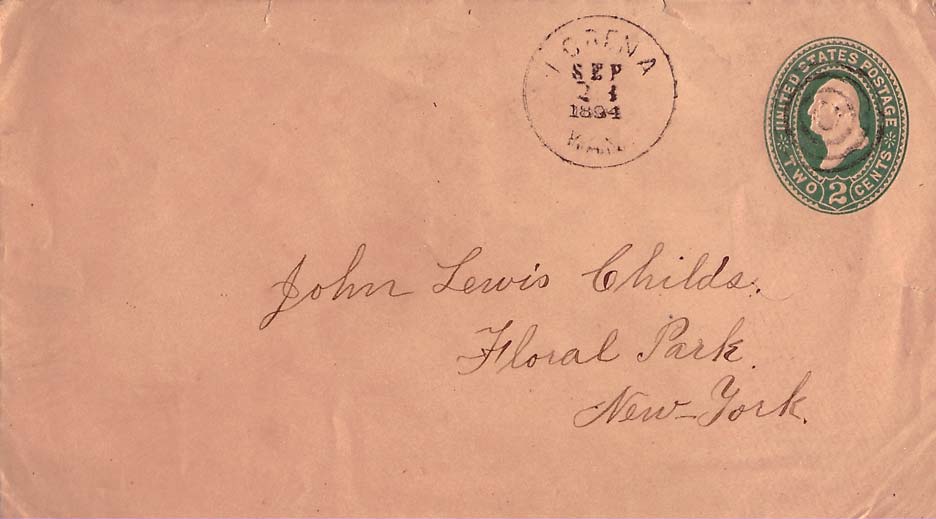 LORENA
SEP
1894
KAN.
UNITED STATES POSTAGE
TWO 2 CENTS
John Lewis Childs.
Floral Park
New-York.